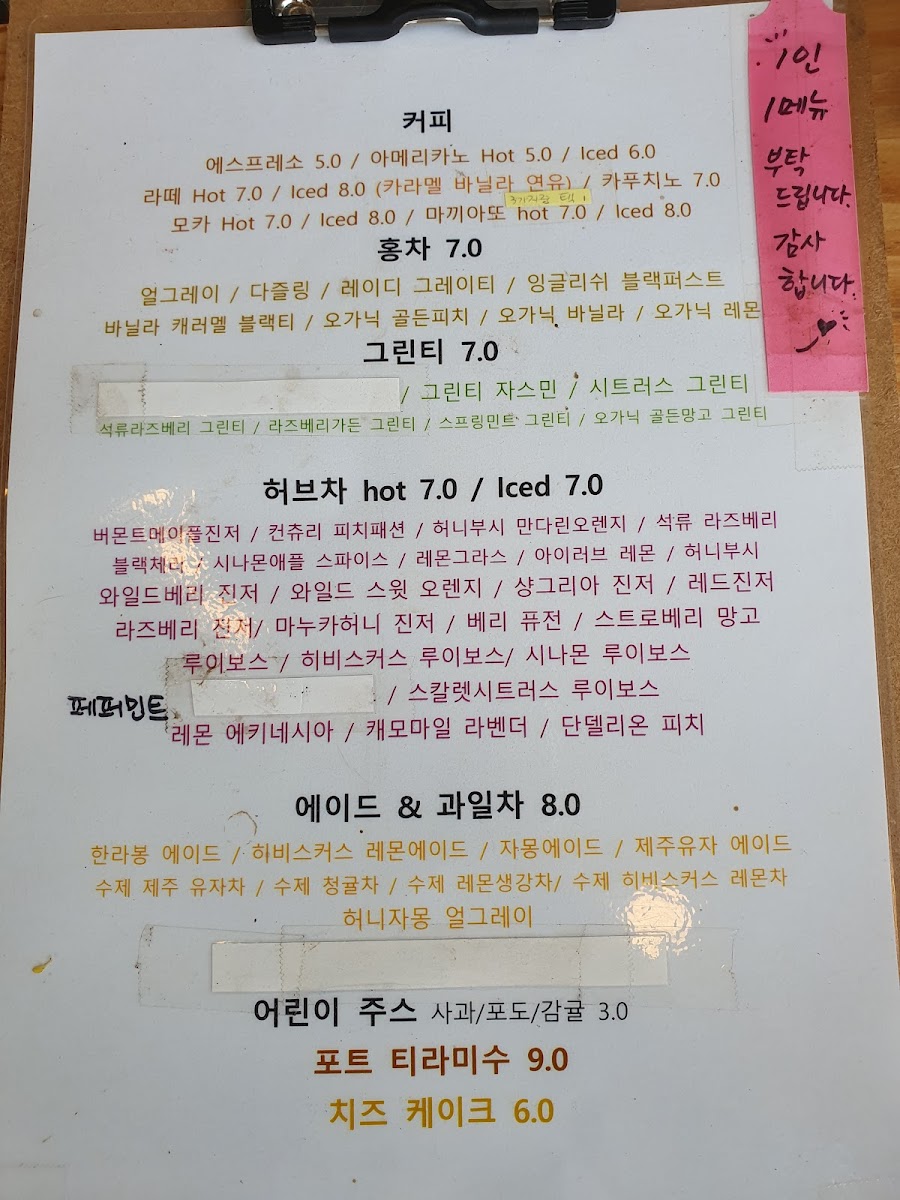 커피
에스프레소 5.0 / 아메리카노 Hot 5.0 / Iced 6.0
라떼 Hot 7.0 / Iced 8.0 (카라멜 바닐라 연유) / 카푸치노 7.0
모카 Hot 7.0 / Iced 8.0 / 마끼아또 hot 7.0 / Iced 8.0
홍차 7.0
얼그레이 / 다즐링 / 레이디 그레이티 / 잉글리쉬 블랙퍼스트
바닐라 캐러멜 블랙티 / 오가닉 골든피치 / 오가닉 바닐라 / 오가닉 레몬
그린티 7.0
/ 그린티 자스민 / 시트러스 그린티
석류라즈베리 그린티 / 라즈베리가든 그린티 / 스프링민트 그린티 / 오가닉 골든망고 그린티
허브차 hot 7.0 / Iced 7.0
버몬트메이플진저 / 컨츄리 피치패션 / 허니부시 만다린오렌지 / 석류 라즈베리
블랙체리 / 시나몬애플 스파이스 / 레몬그라스 / 아이러브 레몬 / 허니부시
와일드베리 진저 / 와일드 스윗 오렌지 / 샹그리아 진저 / 레드진저
라즈베리 진저/ 마누카허니 진저 / 베리 퓨전 / 스트로베리 망고
루이보스 / 히비스커스 루이보스/ 시나몬 루이보스
페퍼민트 / 스칼렛시트러스 루이보스
레몬 에키네시아 / 캐모마일 라벤더 / 단델리온 피치
에이드 & 과일차 8.0
한라봉 에이드 / 히비스커스 레몬에이드 / 자몽에이드 / 제주유자 에이드
수제 제주 유자차 / 수제 청귤차 / 수제 레몬생강차/ 수제 히비스커스 레몬차
허니자몽 얼그레이
어린이 주스 사과/포도/감귤 3.0
포트 티라미수 9.0
치즈 케이크 6.0
1인
1메뉴
부탁
드립니다.
감사
합니다.